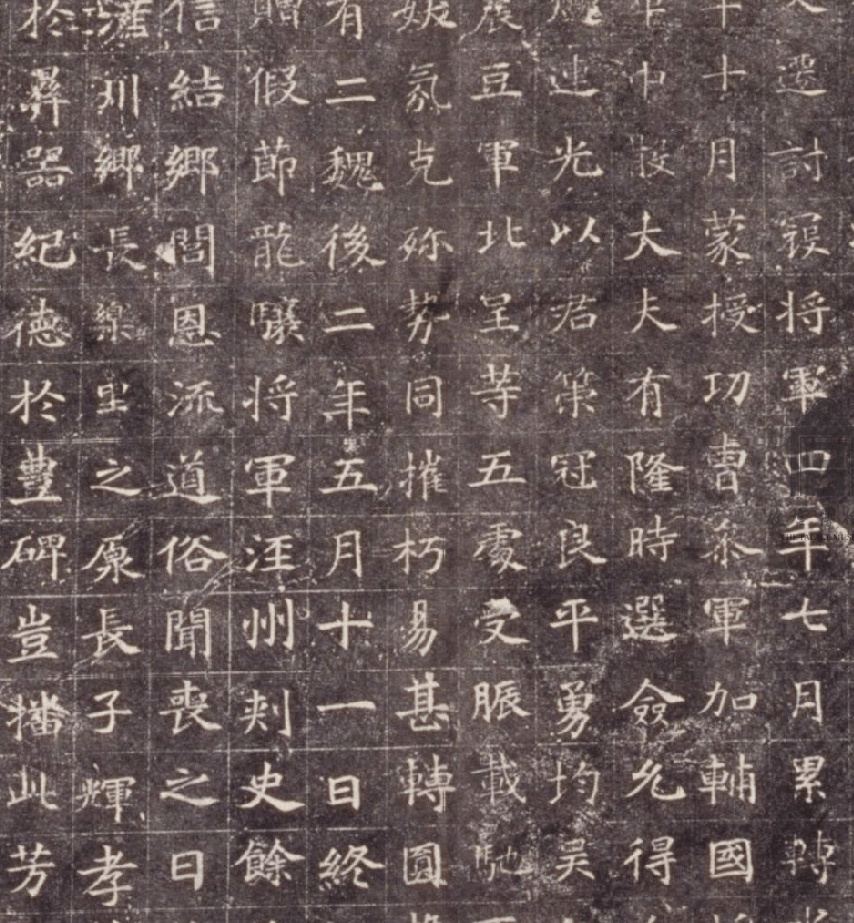 遷討寇将軍四年七月累轉
十月蒙授功曹叅軍加輔國
中散大夫有隆時選僉允得
連光以君策冠良平勇均吴
豆軍北呈等五處受脤載馳
氛克殄勢同摧朽易甚轉圓
有二魏後二年五月十一日終
贈假節龍驤将軍汪州刾史餘
信結鄉閭恩流道俗聞喪之日
州鄉長樂里之原長子輝孝
於彛器紀德於豊碑豈播此芳